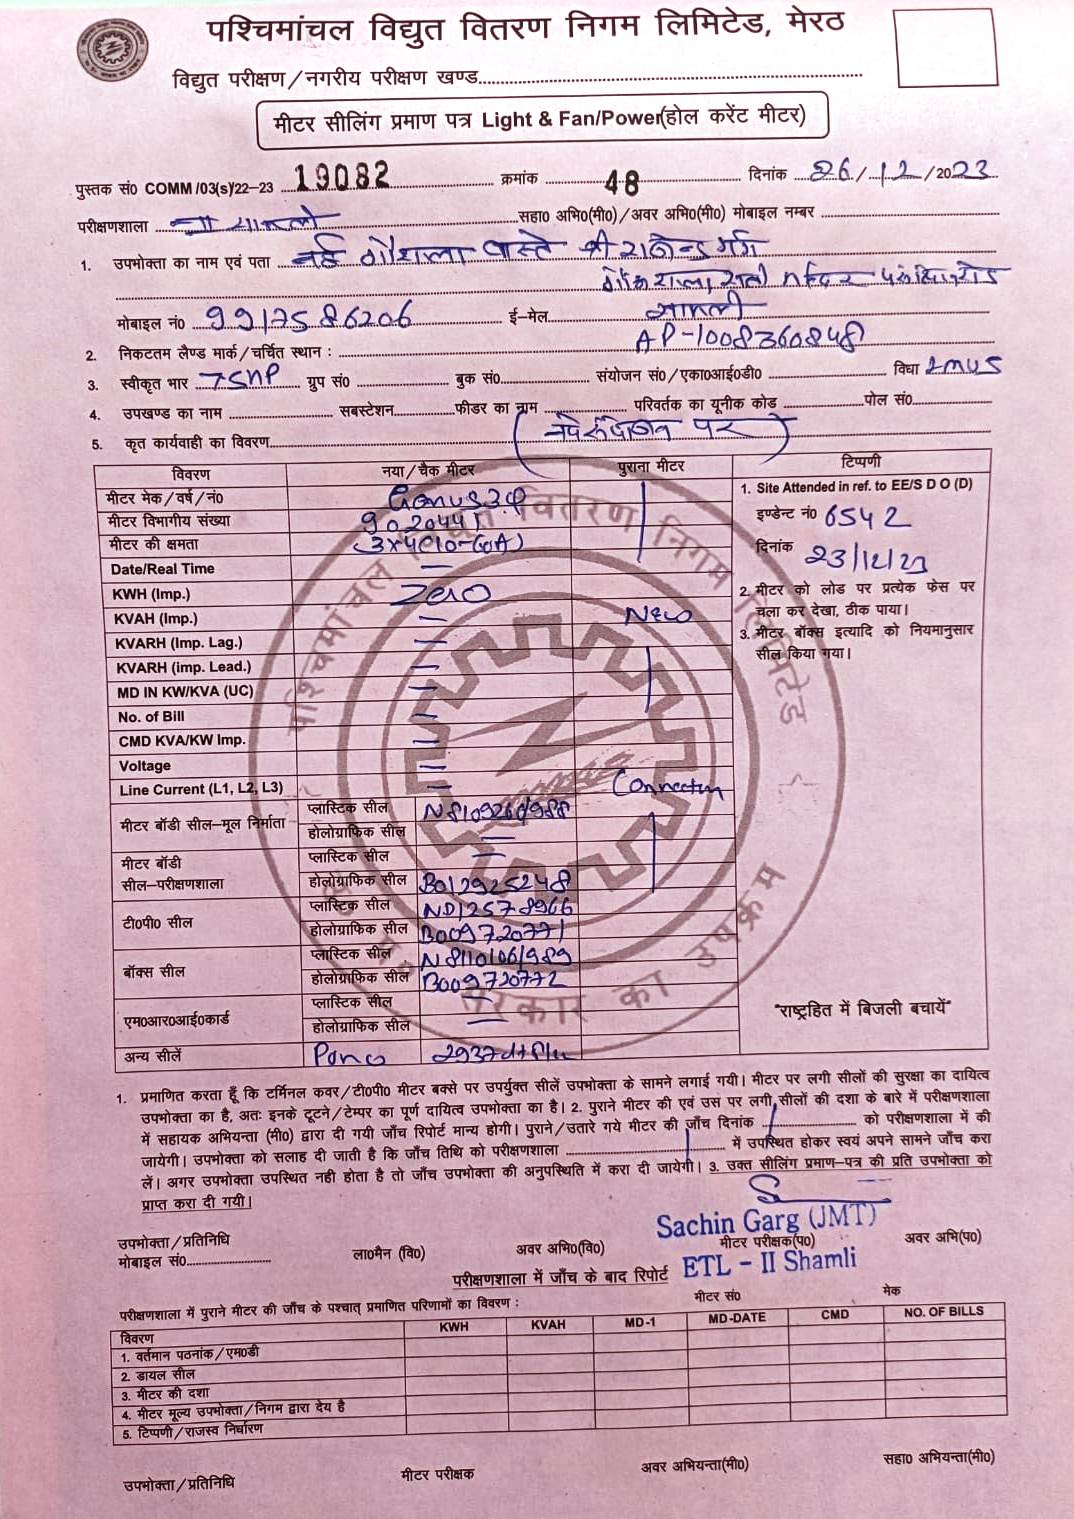 पश्चिमांचल विद्युत वितरण निगम लिमिटेड, मेरठ
विद्युत परीक्षण/नगरीय परीक्षण खण्ड
मीटर सीलिंग प्रमाण पत्र Light & Fan/Power(होल करेंट मीटर)
पुस्तक सं0 COMM /03(s)/22–23 19082 क्रमांक 48 दिनांक 26/12/2023
परीक्षणशाला सहा0 अभि0(मी0)/अवर अभि0(मी0) मोबाइल नम्बर
1. उपभोक्ता का नाम एवं पता नई गौशाला वास्ते श्री राजेन्द्र गर्ग
गौशाला, सती मन्दिर
मोबाइल नं0 9917586206 ई–मेल शामली
AP-1008360848
2. निकटतम लैण्ड मार्क/चर्चित स्थान :
3. स्वीकृत भार ग्रुप सं0 बुक सं0 संयोजन सं0/एका0आई0डी0 विधा LMV5
4. उपखण्ड का नाम सबस्टेशन फीडर का नाम परिवर्तक का यूनीक कोड पोल सं0
5. कृत कार्यवाही का विवरण पर)
विवरण नया/चैक मीटर पुराना मीटर टिप्पणी
मीटर मेक/वर्ष/नं0 Genus 3φ
मीटर विभागीय संख्या 9020441
मीटर की क्षमता
Date/Real Time —
KWH (Imp.) Zero
KVAH (Imp.) — New
KVARH (Imp. Lag.) —
KVARH (imp. Lead.) —
MD IN KW/KVA (UC) —
No. of Bill —
CMD KVA/KW Imp. —
Voltage —
Line Current (L1, L2, L3) — Connection
1. Site Attended in ref. to EE/S D O (D)
इण्डेन्ट नं0 6542
दिनांक 23/12/23
2. मीटर को लोड पर प्रत्येक फेस पर
चला कर देखा, ठीक पाया।
3. मीटर बॉक्स इत्यादि को नियमानुसार
सील किया गया।
मीटर बॉडी सील–मूल निर्माता
प्लास्टिक सील
होलोग्राफिक सील —
मीटर बॉडी
सील–परीक्षणशाला
प्लास्टिक सील —
होलोग्राफिक सील B012925248
टी0पी0 सील
प्लास्टिक सील ND12578966
होलोग्राफिक सील B009720771
बॉक्स सील
प्लास्टिक सील
होलोग्राफिक सील B009720772
एम0आर0आई0कार्ड
प्लास्टिक सील —
होलोग्राफिक सील —
अन्य सीलें
"राष्ट्रहित में बिजली बचायें"
पश्चिमांचल विद्युत वितरण निगम लिमिटेड
सरकार का उपक्रम
1. प्रमाणित करता हूँ कि टर्मिनल कवर/टी0पी0 मीटर बक्से पर उपर्युक्त सीलें उपभोक्ता के सामने लगाई गयी। मीटर पर लगी सीलों की सुरक्षा का दायित्व
उपभोक्ता का है, अतः इनके टूटने/टेम्पर का पूर्ण दायित्व उपभोक्ता का है। 2. पुराने मीटर की एवं उस पर लगी सीलों की दशा के बारे में परीक्षणशाला
में सहायक अभियन्ता (मी0) द्वारा दी गयी जाँच रिपोर्ट मान्य होगी। पुराने/उतारे गये मीटर की जाँच दिनांक को परीक्षणशाला में की
जायेगी। उपभोक्ता को सलाह दी जाती है कि जाँच तिथि को परीक्षणशाला में उपस्थित होकर स्वयं अपने सामने जाँच करा
लें। अगर उपभोक्ता उपस्थित नही होता है तो जाँच उपभोक्ता की अनुपस्थिति में करा दी जायेगी। 3. उक्त सीलिंग प्रमाण–पत्र की प्रति उपभोक्ता को
प्राप्त करा दी गयी।
Sachin Garg (JMT)
उपभोक्ता/प्रतिनिधि ला0मैन (वि0) अवर अभि0(वि0) मीटर परीक्षक(प0) अवर अभि(प0)
मोबाइल सं0
ETL - II Shamli
परीक्षणशाला में जाँच के बाद रिपोर्ट
परीक्षणशाला में पुराने मीटर की जाँच के पश्चात् प्रमाणित परिणामों का विवरण : मीटर सं0 मेक
विवरण KWH KVAH MD-1 MD-DATE CMD NO. OF BILLS
1. वर्तमान पठनांक/एम0डी
2. डायल सील
3. मीटर की दशा
4. मीटर मूल्य उपभोक्ता/निगम द्वारा देय है
5. टिप्पणी/राजस्व निर्धारण
उपभोक्ता/प्रतिनिधि मीटर परीक्षक अवर अभियन्ता(मी0) सहा0 अभियन्ता(मी0)